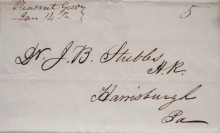 Pleasant Grove
Jan 14 52
5
Dr J. B. Stubbs
H. R.
Harrisburgh
Pa